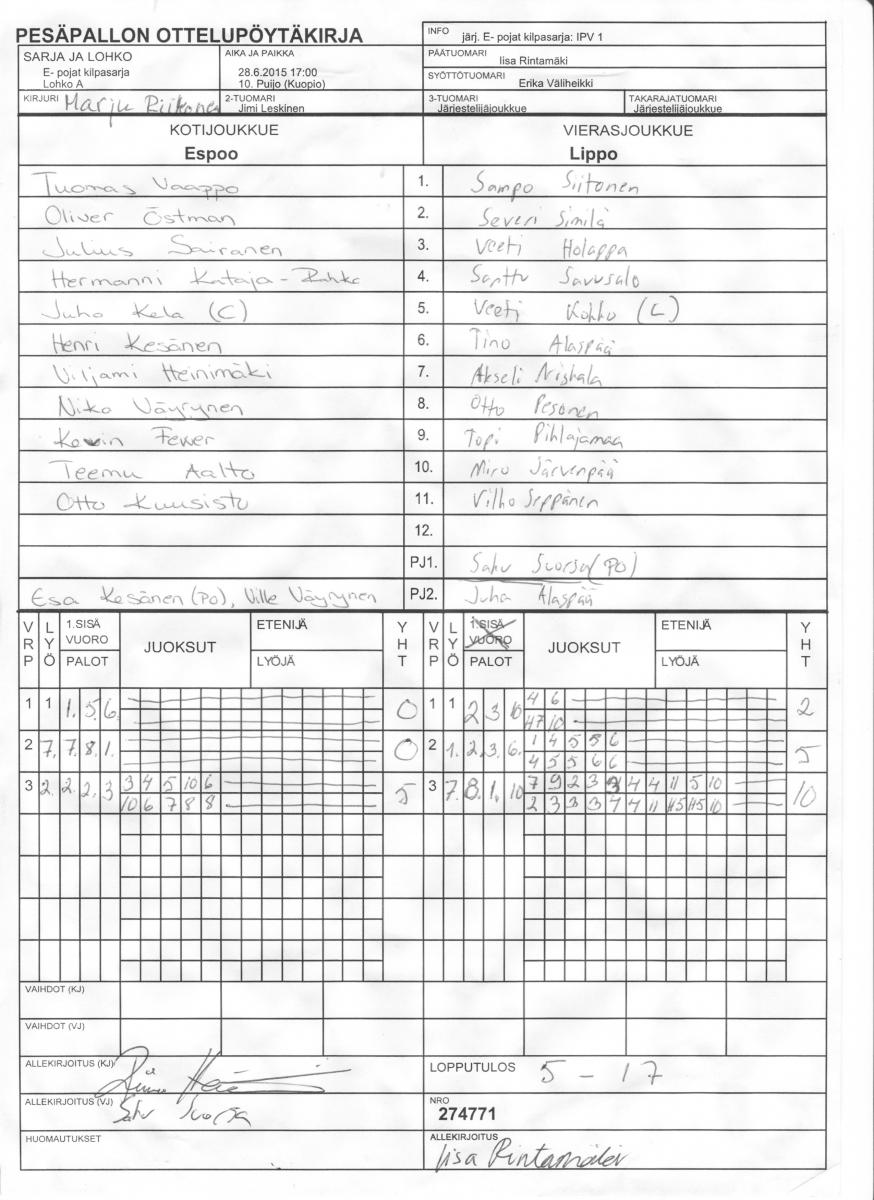 PESÄPALLON OTTELUPÖYTÄKIRJA
INFO järj. E- pojat kilpasarja: IPV 1
SARJA JA LOHKO
E- pojat kilpasarja
Lohko A
AIKA JA PAIKKA
28.6.2015 17:00
10. Puijo (Kuopio)
PÄÄTUOMARI
Iisa Rintamäki
SYÖTTÖTUOMARI
Erika Väliheikki
KIRJURI Marju Piikonen
2-TUOMARI
Jimi Leskinen
3-TUOMARI
Järjestelijäjoukkue
TAKARAJATUOMARI
Järjestelijäjoukkue
KOTIJOUKKUE
Espoo
VIERASJOUKKUE
Lippo
Tuomas Vaappo 1. Sampo Siitonen
Oliver Östman 2. Severi Similä
Julius Sairanen 3. Veeti Holappa
Hermanni Kataja- 4. Santtu Savusalo
Juho Kela (C) 5. Veeti Kokko (C)
Henri Kesänen 6. Tino Alaspää
Viljami Heinimäki 7. Akseli
Niko Väyrynen 8. Otto Pesonen
Kevin Fewer 9. Topi Pihlajamaa
Teemu Aalto 10. Miro Järvenpää
Otto Kuusisto 11. Vilho Seppänen
12.
PJ1. Saku Suorsa (PO)
Esa Kesänen (PO), Ville Väyrynen PJ2. Juha Alaspää
VRP LYÖ 1.SISÄ VUORO PALOT JUOKSUT ETENIJÄ LYÖJÄ YHT VRP LYÖ 1.SISÄ VUORO PALOT JUOKSUT ETENIJÄ LYÖJÄ YHT
1 1 1. 5. 6. 0 1 1 2 3 10 4 6 2
47 10
2 7. 7. 8. 1. 0 2 1. 2. 3. 6. 1 4 5 5 6 5
4 5 5 6 6
3 2. 2. 2. 3 3 4 5 10 6 5 3 7. 8. 1. 10 7 9 2 3 3 4 4 11 5 10 10
10 6 7 8 8 2 3 3 3 4 4 11 10
VAIHDOT (KJ)
VAIHDOT (VJ)
ALLEKIRJOITUS (KJ)
LOPPUTULOS 5 - 17
ALLEKIRJOITUS (VJ) Saku Suorsa
NRO
274771
HUOMAUTUKSET
ALLEKIRJOITUS
Iisa Rintamäki